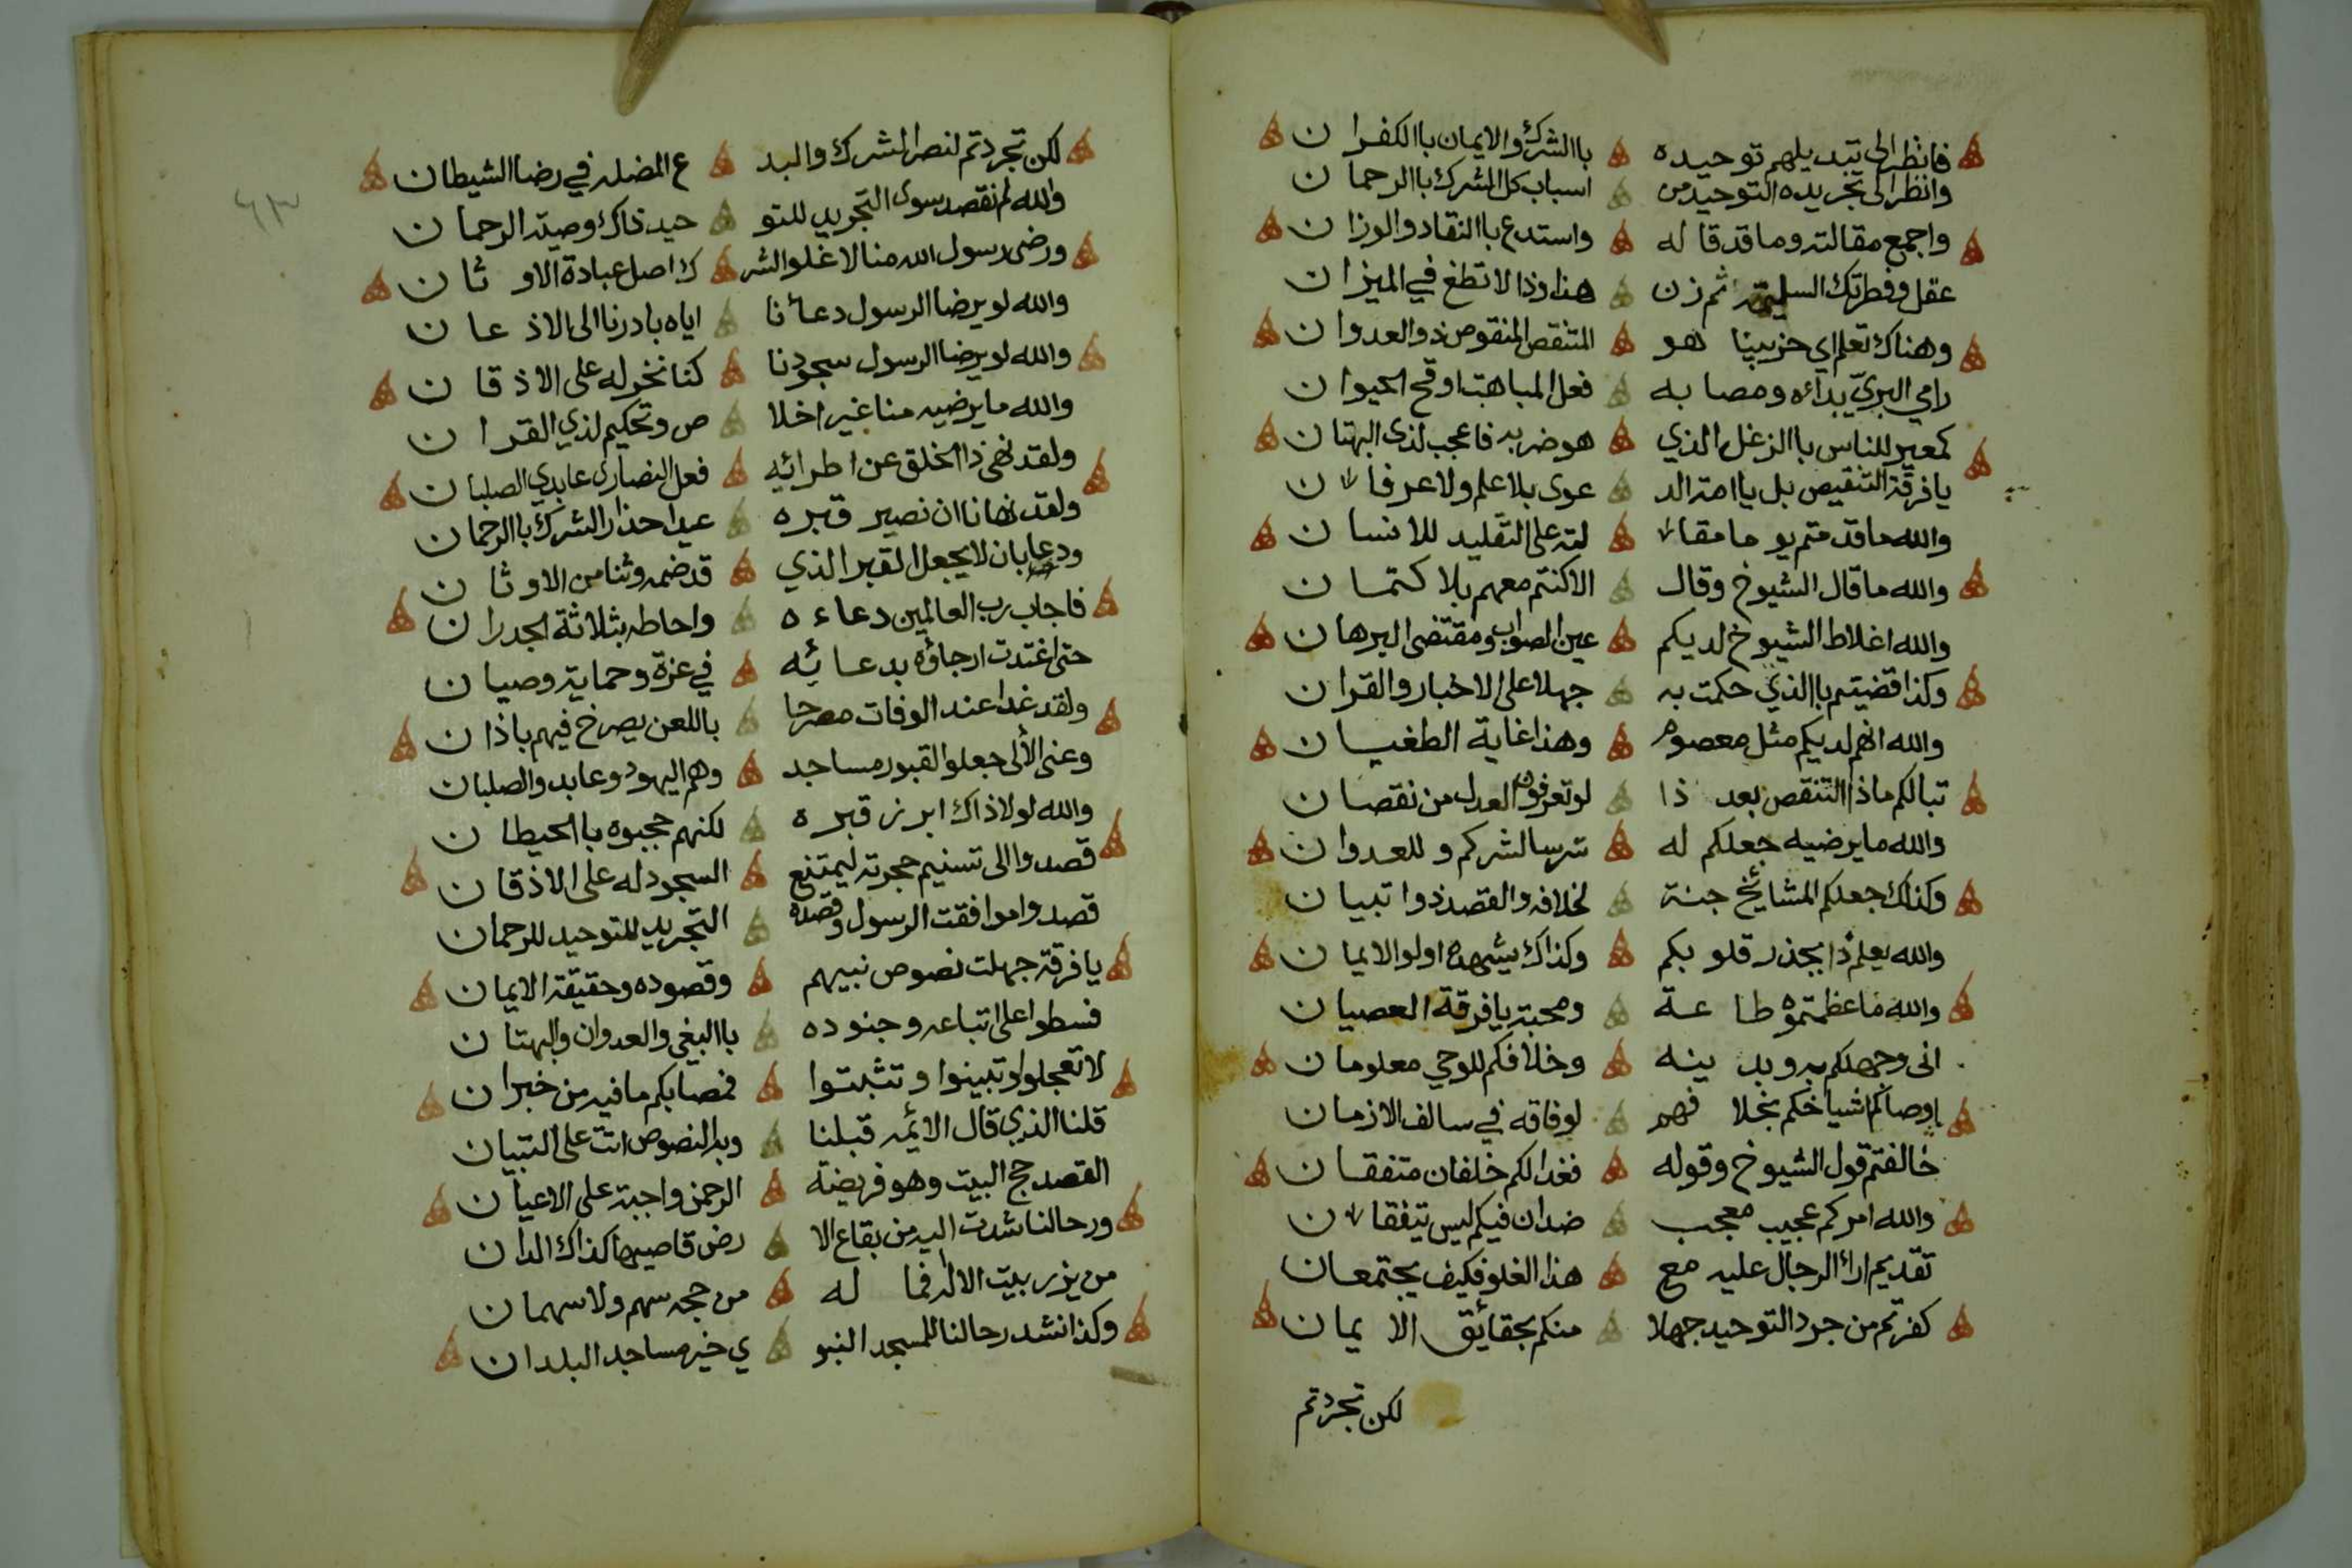 فانظر الى تبديلهم توحيده باالشرك والايمان باالكفران
وانظر الى تجريده التوحيد من اسباب كل الشرك باالرحمان
واجمع مقالته وما قد قاله واستدع باالنقاد والوزان
عقل وفطرتك السليمة ثم زن هذا وذا لا تطغ في الميزان
وهناك تعلم اي حزبينا هو المتنقص المنقوص ذو العدوان
رامي البريّ بدائه ومصابه فعل المباهت اوقح الحيوان
كمعير للناس باالزغل الذي هو ضربه فاعجب لذى البهتان
يا فرقة التنقيص بل يا امة الد عوى بلا علم ولا عرفان
والله ما قدمتم يوما مقا لته على التقليد للانسان
والله ما قال الشيوخ وقال الا كنتم معهم بلا كتمان
والله اغلاط الشيوخ لديكم عين الصواب ومقتضى البرهان
وكذا قضيتم باالذي حكمت به جهلا على الاخبار والقران
والله انهم لديكم مثل معصوم وهذا غاية الطغيان
تبا لكم ماذا التنقص بعد ذا لو تعرفون العدل من نقصان
والله ما يرضيه جعلكم له ترسا لشرككم وللعدوان
وكذلك جعلكم المشائخ جنة لخلافه والقصد ذوا تبيان
والله يعلم ذا بجذر قلوبكم وكذاك يشهده اولوا الايمان
والله ما عظمتموه طاعة ومحبة يا فرقة العصيان
انى وجهلكم به وبدينه وخلافكم للوحي معلومان
اوصاكم اشياخكم بخلافهم لوفاقه في سالف الازمان
خالفتم قول الشيوخ وقوله فغدا لكم خلفان متفقان
والله امركم عجيب معجب ضدان فيكم ليس يتفقان
تقديم اراء الرجال عليه مع هذا الغلو فكيف يجتمعان
كفرتم من جرد التوحيد جهلا منكم بحقائق الايمان
لكن تجردتم
٦٣
لكن تجردتم لنصر الشرك والبد ع المضلة في رضا الشيطان
والله لم نقصد سوى التجريد للتو حيد ذاك وصية الرحمان
ورضى رسول الله منا لا غلوا الشر ك اصل عبادة الاوثان
والله لو يرضا الرسول دعائنا اياه بادرنا الى الاذعان
والله لو يرضا الرسول سجودنا كنا نخر له على الاذقان
والله ما يرضيه منا غير اخلا ص وتحكيم لذي القران
ولقد نهى ذا الخلق عن اطرائه فعل النصارى عابدي الصلبان
ولقد نهانا ان نصير قبره عيدا حذار الشرك باالرحمان
ودعا بان لا يجعل القبر الذي قد ضمه وثنا من الاوثان
فاجاب رب العالمين دعاءه واحاطه بثلاثة الجدران
حتى اغتدت ارجاؤه بدعائه في عزة وحماية وصيان
ولقد غدا عند الوفات مصرحا باللعن يصرخ فيهم باذان
وعنى الألى جعلوا القبور مساجد وهم اليهود وعابدو الصلبان
والله لولا ذاك ابرز قبره لكنهم حجبوه باالحيطان
قصدوا الى تسنيم حجرته ليمتنع السجود له على الاذقان
قصدوا موافقت الرسول وقصده التجريد للتوحيد للرحمان
يا فرقة جهلت نصوص نبيهم وقصوده وحقيقة الايمان
فسطوا على اتباعه وجنوده باالبغي والعدوان والبهتان
لا تعجلوا وتبينوا وتثبتوا فمصابكم ما فيه من خبران
قلنا الذي قال الأئمه قبلنا وبه النصوص اتت على التبيان
القصد حج البيت وهو فريضة الرحمن واجبة على الاعيان
ورحالنا شدت اليه من بقاع الا رض قاصيها كذاك الدان
من يزر بيت الاله فما له من حجه سهم ولا سهمان
وكذا نشد رحالنا للمسجد النبو ي خير مساجد البلدان